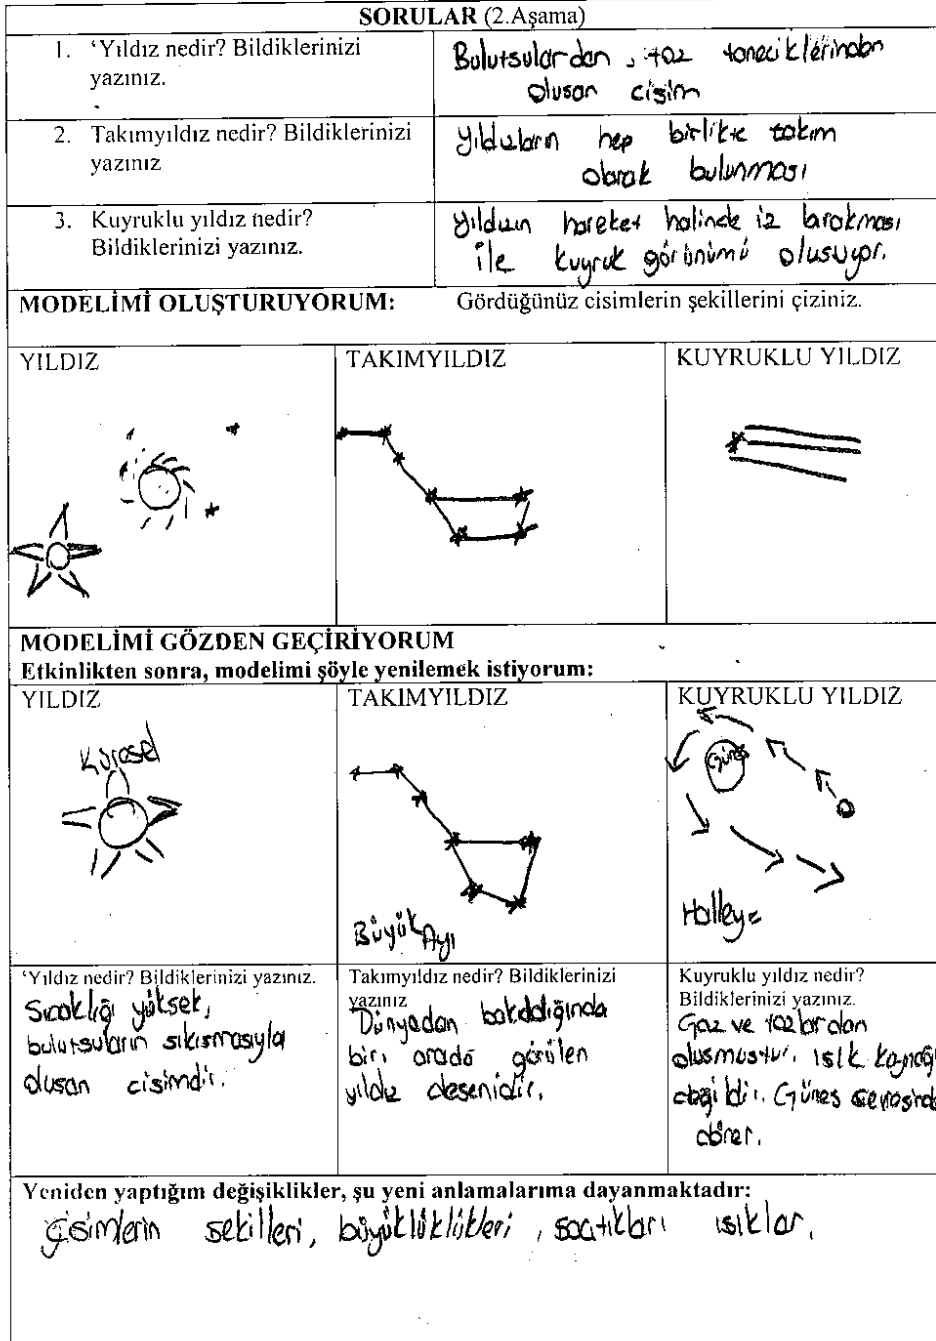 SORULAR (2.Aşama)
1. ‘Yıldız nedir? Bildiklerinizi
yazınız.
Bulutsulardan, toz taneciklerinden
oluşan cisim
2. Takımyıldız nedir? Bildiklerinizi
yazınız
Yıldızların hep birlikte takım
olarak bulunması
3. Kuyruklu yıldız nedir?
Bildiklerinizi yazınız.
Yıldızın hareket halinde iz bırakması
ile kuyruk görünümü oluşuyor.
MODELİMİ OLUŞTURUYORUM: Gördüğünüz cisimlerin şekillerini çiziniz.
YILDIZ
TAKIMYILDIZ
KUYRUKLU YILDIZ
MODELİMİ GÖZDEN GEÇİRİYORUM
Etkinlikten sonra, modelimi şöyle yenilemek istiyorum:
YILDIZ
Küresel
TAKIMYILDIZ
Büyük Ayı
KUYRUKLU YILDIZ
Güneş
Halley=
‘Yıldız nedir? Bildiklerinizi yazınız.
Sıcaklığı yüksek,
bulutsuların sıkışmasıyla
oluşan cisimdir.
Takımyıldız nedir? Bildiklerinizi
yazınız
Dünyadan bakıldığında
bir arada görülen
yıldız desenidir.
Kuyruklu yıldız nedir?
Bildiklerinizi yazınız.
Gaz ve tozlardan
oluşmuştur. ışık kaynağı
değildir. Güneş çevresinde
döner.
Yeniden yaptığım değişiklikler, şu yeni anlamalarıma dayanmaktadır:
Cisimlerin şekilleri, büyüklüklükleri, saçtıkları ışıklar.